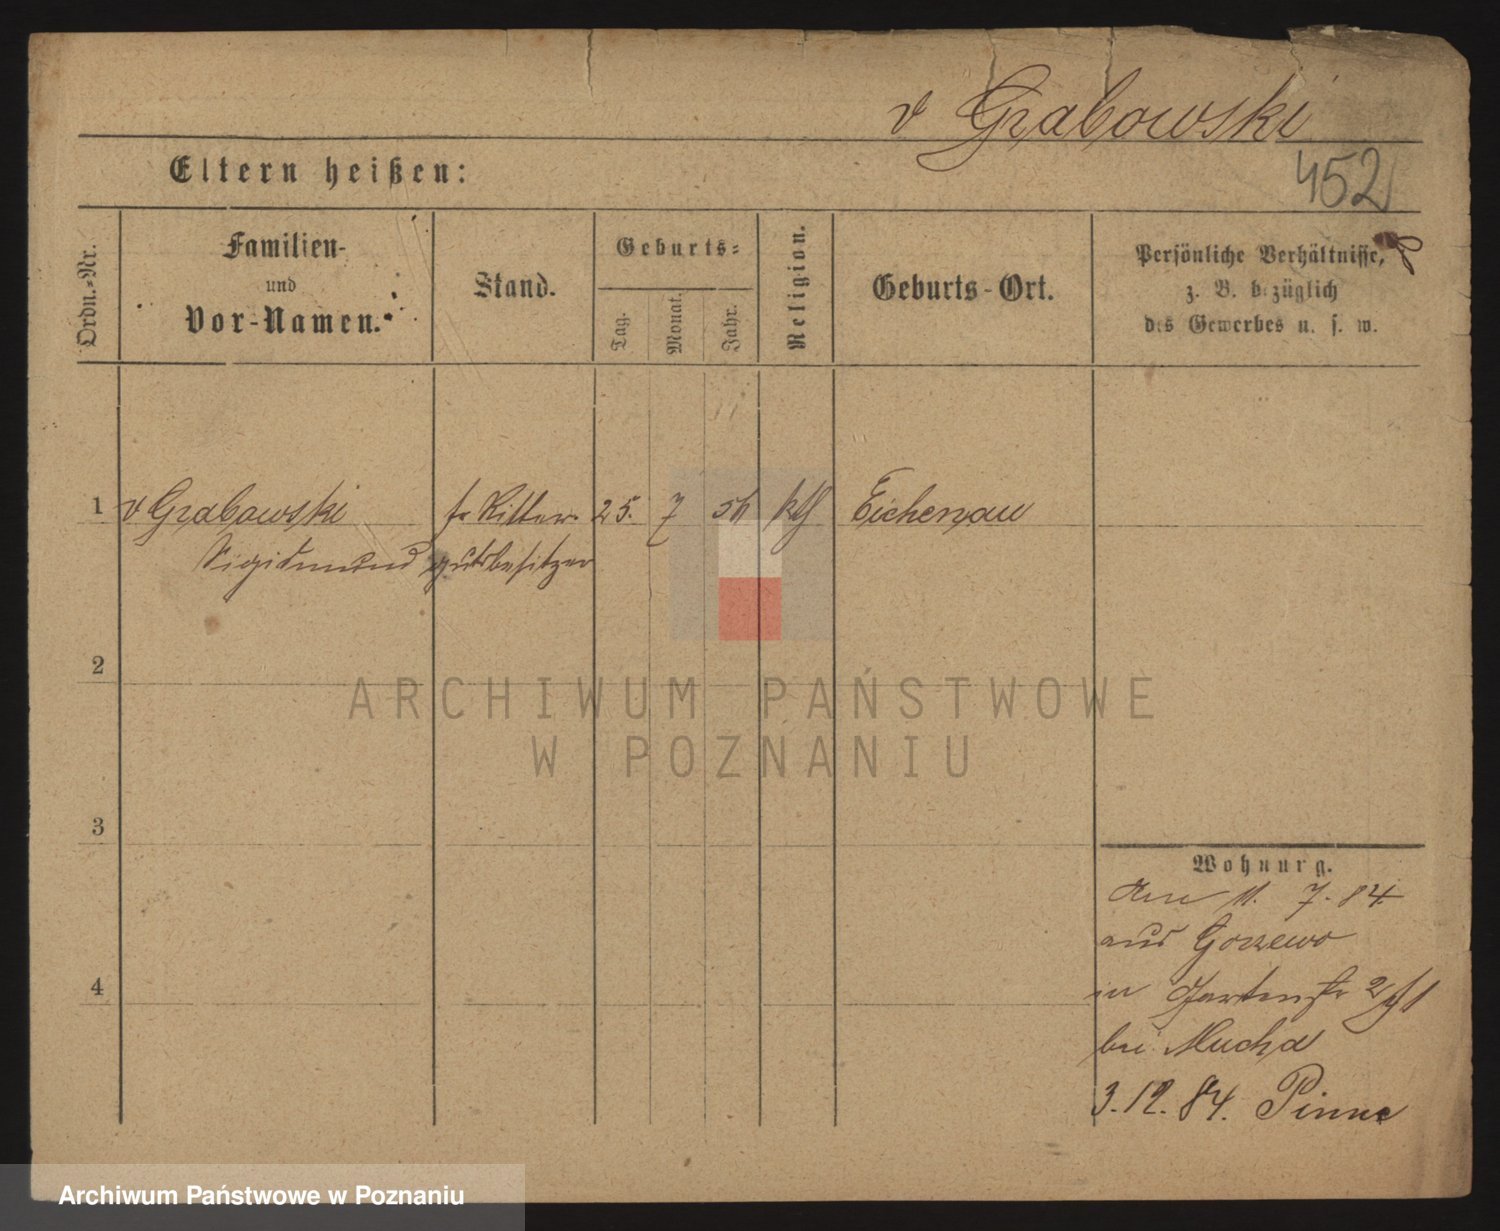 v Grabowski
Eltern heißen:
452
Ordn.-Nr.
Familien-
und
Vor-Namen.
Stand.
Geburts-
Tag.
Monat.
Jahr.
Religion.
Geburts-Ort.
Persönliche Verhältnisse,
z. B. bezüglich
des Gewerbes u. s. w.
1 v Grabowski fr Ritter- 25. 7 kth Eichenau
Sigismund gutsbesitzer
2
3
4
Wohnung.
Am 11. 7. 84
aus Gorzewo
in Gartenstr 2
bei Mucha
3. 12. 84. Pinne
ARCHIWUM PAŃSTWOWE
W POZNANIU
Archiwum Państwowe w Poznaniu